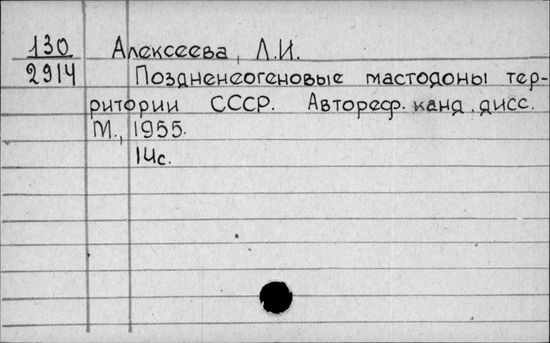 130 Алексеева, Л.И.
2914 Поздненеогеновые мастодоны тер-
ритории СССР. Автореф. канд. дисс.
М., 1955.
14с.